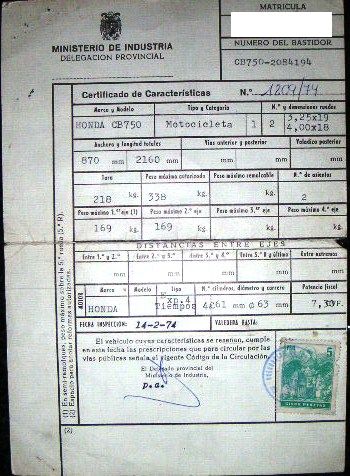 MATRICULA
MINISTERIO DE INDUSTRIA
DELEGACION PROVINCIAL
NUMERO DEL BASTIDOR
CB750-2084194
Certificado de Características N.º 1209/74
Marca y Modelo Tipo y Categoría N.º y dimensiones ruedas
HONDA CB750 Motocicleta 1 2 3,25x19
4,00x18
Anchura y longitud totales Vías anterior y posterior Voladizo posterior
870 mm 2160 mm mm mm
Tara Peso máximo autorizado Peso máximo remolcable N.º de asientos
218 kg. 338 kg. kg. 2
Peso máximo 1.er eje (1) Peso máximo 2.º eje Peso máximo 3.er eje Peso máximo 4.º eje
169 kg. 169 kg. kg. kg.
DISTANCIAS ENTRE EJES
Entre 1.º y 2.º Entre 2.º y 3.º Entre 3.º y 4.º Entre 5.º y último Entre extremos
mm mm mm mm mm
MOTOR Marca Tipo N.º cilindros, diámetro y carrera Potencia fiscal
HONDA Exp.4 Tiempos 4 ¢ 61 mm ¢ 63 mm 7,3 F.
FECHA INSPECCION: 14-2-74 VALEDERA HASTA:
El vehículo cuyas características se reseñan, cumple
en esta fecha las prescripciones que para circular por las
vías públicas señala el vigente Código de la Circulación.
El Delegado provincial del
Ministerio de Industria,
D.O.
5
CINCO PESETAS
(1) En semi-remolques, peso máximo sobre la 5.ª rueda (5.ª R).
(2) Espacio para anotar reformas autorizadas.
(2)